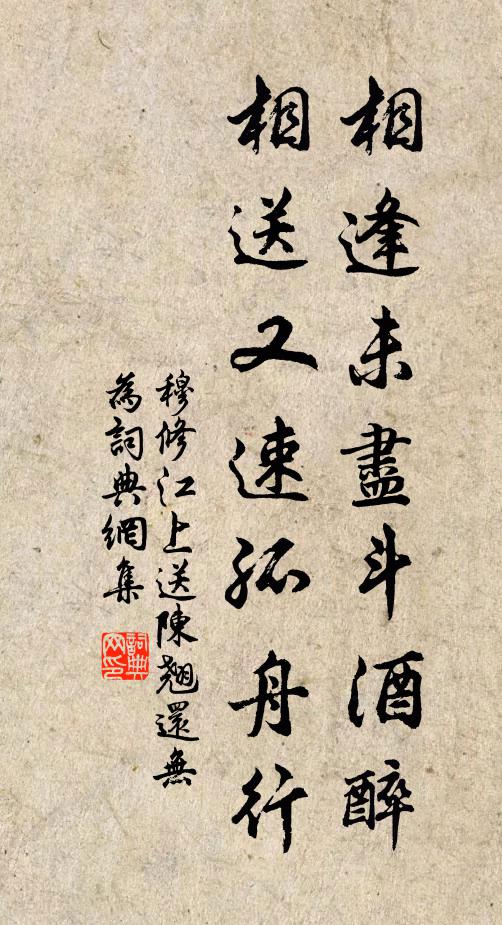 相逢未盡斗酒醉
相送又速孤舟行
穆修江上送陳翹還無
為詞典網集
詞典
网印